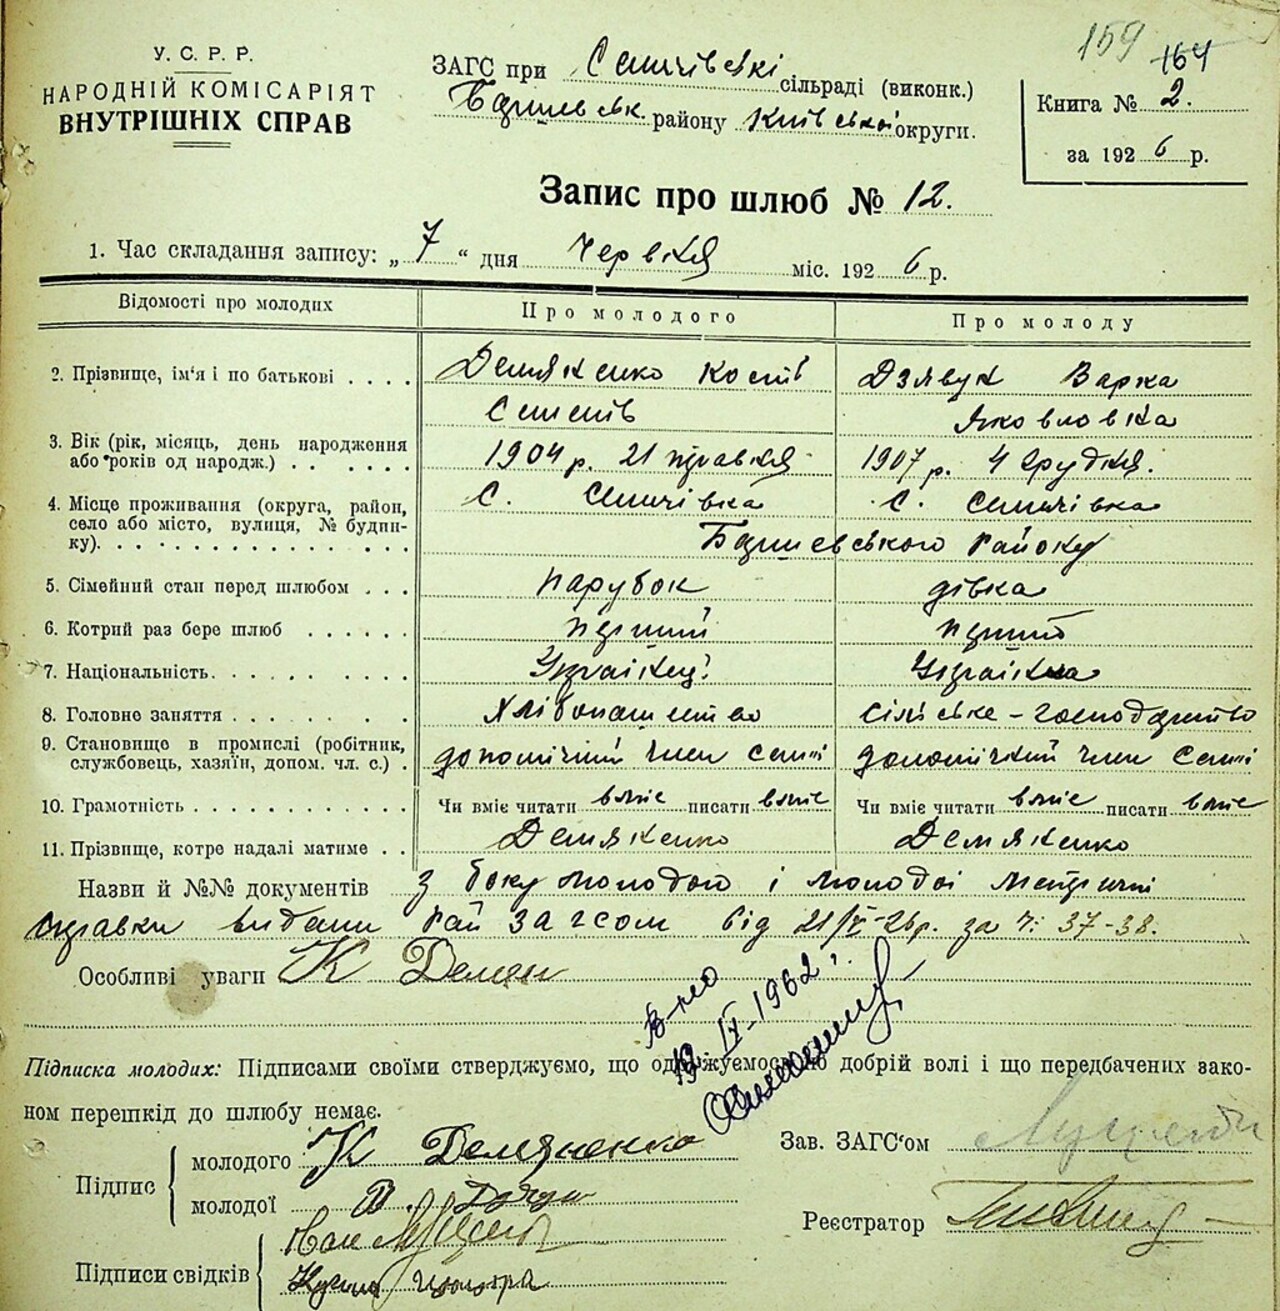 159 164
У. С. Р. Р.
НАРОДНІЙ КОМІСАРІЯТ
ВНУТРІШНІХ СПРАВ
ЗАГС при Сеничівські сільраді (виконк.)
району Київської округи.
Книга № 2.
за 1926 р.
Запис про шлюб № 12.
1. Час складання запису: „7“ дня Червня міс. 1926 р.
Відомості про молодих
Про молодого
Про молоду
2. Прізвище, ім'я і по батькові
Демяненко
Дзявук Варка
Яковловна
3. Вік (рік, місяць, день народження
або років од народж.)
1904 р. 21 травня
1907 р. 4 Грудня.
4. Місце проживання (округа, район,
село або місто, вулиця, № будин-
ку).
С. Сеничівка
С. Сеничівка
Району
5. Сімейний стан перед шлюбом
парубок
дівка
6. Котрий раз бере шлюб
перший
перший
7. Національність
Українец
Українка
8. Головне заняття
Хлібопашество
сільське-господарство
9. Становище в промислі (робітник,
службовець, хазяїн, допом. чл. с.)
допомічний член семї
допомічний член семї
10. Грамотність
Чи вміє читати вміє писати вміє
Чи вміє читати вміє писати вміє
11. Прізвище, котре надалі матиме
Демяненко
Демяненко
Назви й №№ документів з боку молодого і молодої метричні
справки видани Рай Загсом від 21/V-26р. за ч: 37-38.
Особливі уваги К Демян
IX-1962 г.
Підписка молодих: Підписами своїми стверджуємо, що одружуємось по добрій волі і що передбачених зако-
ном перешкід до шлюбу немає.
Підпис
молодого К Демяненко
молодої В.
Зав. ЗАГС'ом
Реєстратор
Підписи свідків